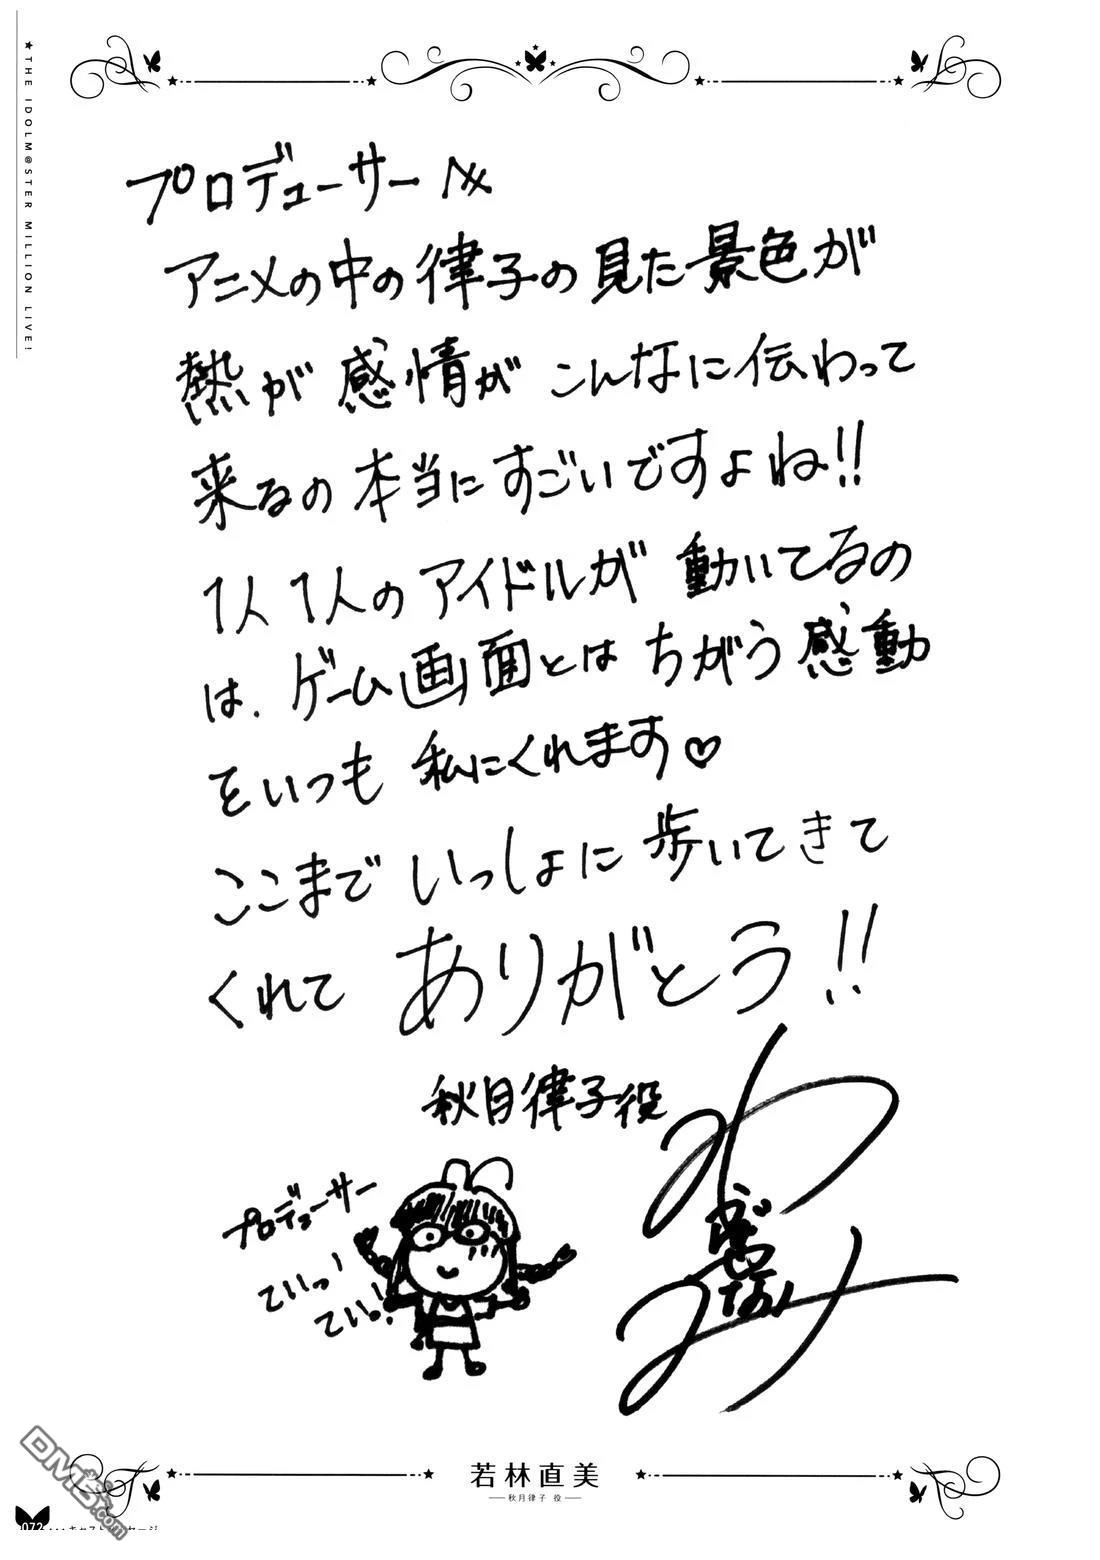 ★THE IDOLM@STER MILLION LIVE!
プロデューサー
アニメの中の律子の見た景色が
熱が 感情が こんなに伝わって
来るの 本当に すごいですよね!!
1人 1人の アイドルが 動いてるの
は、ゲーム画面とは ちがう 感動
をいつも 私にくれます♡
ここまで いっしょに 歩いてきて
くれて ありがとう!!
秋月律子役
プロデューサー
ていっ!
ていっ!
わ
み
若林直美
秋月律子 役
072
キャストメッセージ